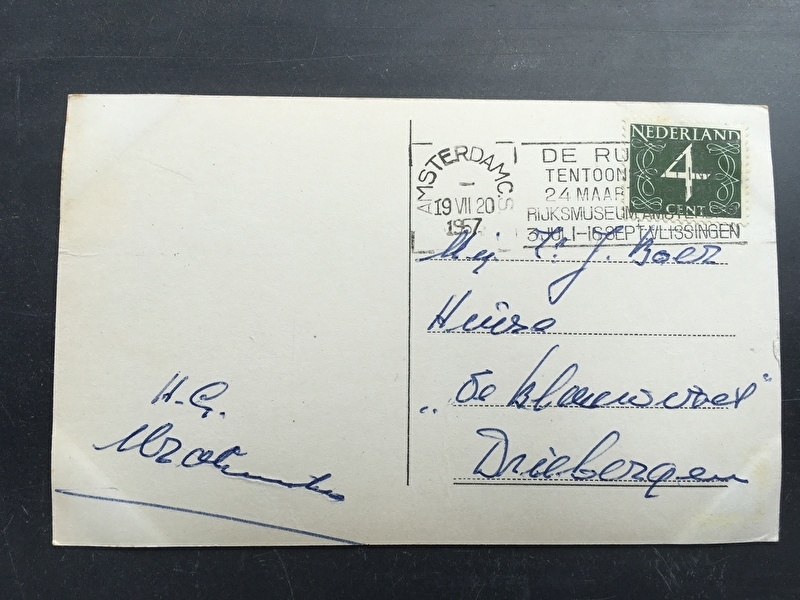 AMSTERDAM C.S
19 VII 20
1957
DE RU
TENTOON
24 MAART
RIJKSMUSEUM AMSTER
3 JULI-16 SEPT. VLISSINGEN
NEDERLAND
4
CENT
Mej T. J. Boer
Huize
„De Blauwvoet"
Driebergen
H.G.